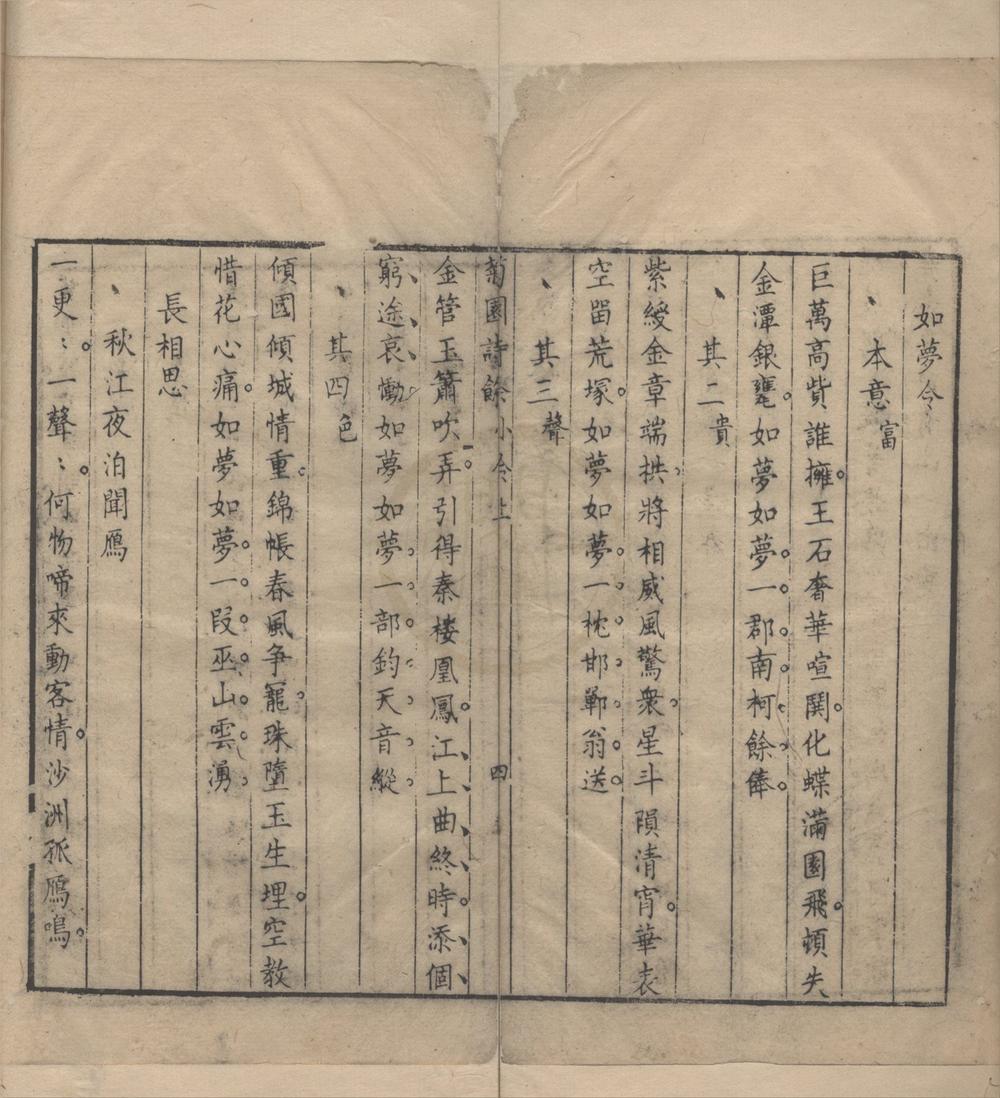 如夢令
本意富
巨萬高貲誰擁王石奢華喧鬨化蝶滿園飛頓失
金潭銀甕如夢如夢一郡南柯餘俸
其二貴
紫綬金章端拱將相威風驚衆星斗隕清宵華表
空留荒塚如夢如夢一枕邯鄲翁送
其三聲
菊園詩餘小令上 四
金管玉簫吹弄引得秦楼凰鳳江上曲終時添個
窮途哀慟如夢如夢一部鈞天音縱
其四色
傾國傾城情重錦帳春風争寵珠墮玉生埋空教
惜花心痛如夢如夢一段巫山雲湧
長相思
秋江夜泊聞鴈
一更：一聲：何物啼來動客情沙洲孤鴈鳴